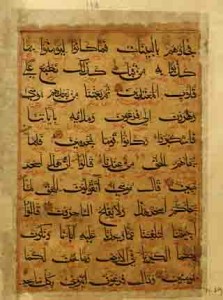 فجاؤهم بالبينات فما كانوا ليؤمنوا بما
كذبوا به من قبل كذلك نطبع على
قلوب المعتدين ثم بعثنا من بعدهم موسى
وهرون الى فرعون وملائه باياتنا
فاستكبروا وكانوا قوما مجرمين فلما
جاءهم الحق من عندنا قالوا ان هذا لسحر
مبين قال موسى اتقولون للحق لما
جاءكم اسحر هذا ولا يفلح الساحرون قالوا
اجئتنا لتلفتنا عما وجدنا عليه اباءنا وتكون
لكما الكبرياء في الارض وما نحن لكما
بمؤمنين وقال فرعون ائتوني بكل ساحر